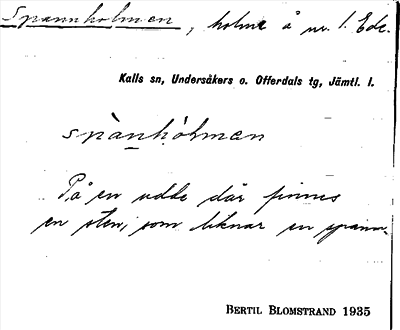 Spannholmen, holme å nr. 1. Ede.
Kalls sn, Undersåkers o. Offerdals tg, Jämtl. l.
spànhòlmen
På en udde där finnes
en sten, som liknar en spann.
BERTIL BLOMSTRAND 1935